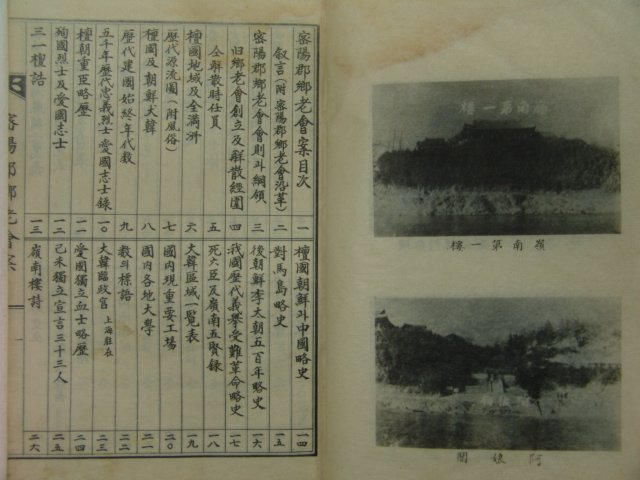 嶺南第一樓
嶺南第一樓
阿娘閣
密陽郡鄕老會案目次
叙言(附 密陽郡鄕老會沿革) 一
密陽郡鄕老會會則斗綱領 二
旧鄕老會創立及解散經圍 三
仝解散時任員 四
檀國地域及全滿洲 五
歷代源流圖(附風俗) 六
檀國及朝鮮大韓 七
歷代建國始終年代数 八
五千年歷代忠義烈士愛國志士錄 九
檀朝重臣略歷 一〇
殉國烈士及愛國志士 一一
三一檀誥 一二
一三
檀國朝鮮斗中國略史 一四
對馬島略史 一五
後朝鮮李太朝五百年略史 一六
我國歷代義擧受難革命略史 一七
死六臣及嶺南五賢録 一八
大韓區域一覧表 一九
國內現重要工場 二〇
國内各地大學 二一
敎斗標語 二二
大韓臨政官 上海駐在 二三
愛國獨立血士略歷 二四
己未獨立宣言三十三人 二五
嶺南樓詩 二六
密陽郡鄕老會案
一